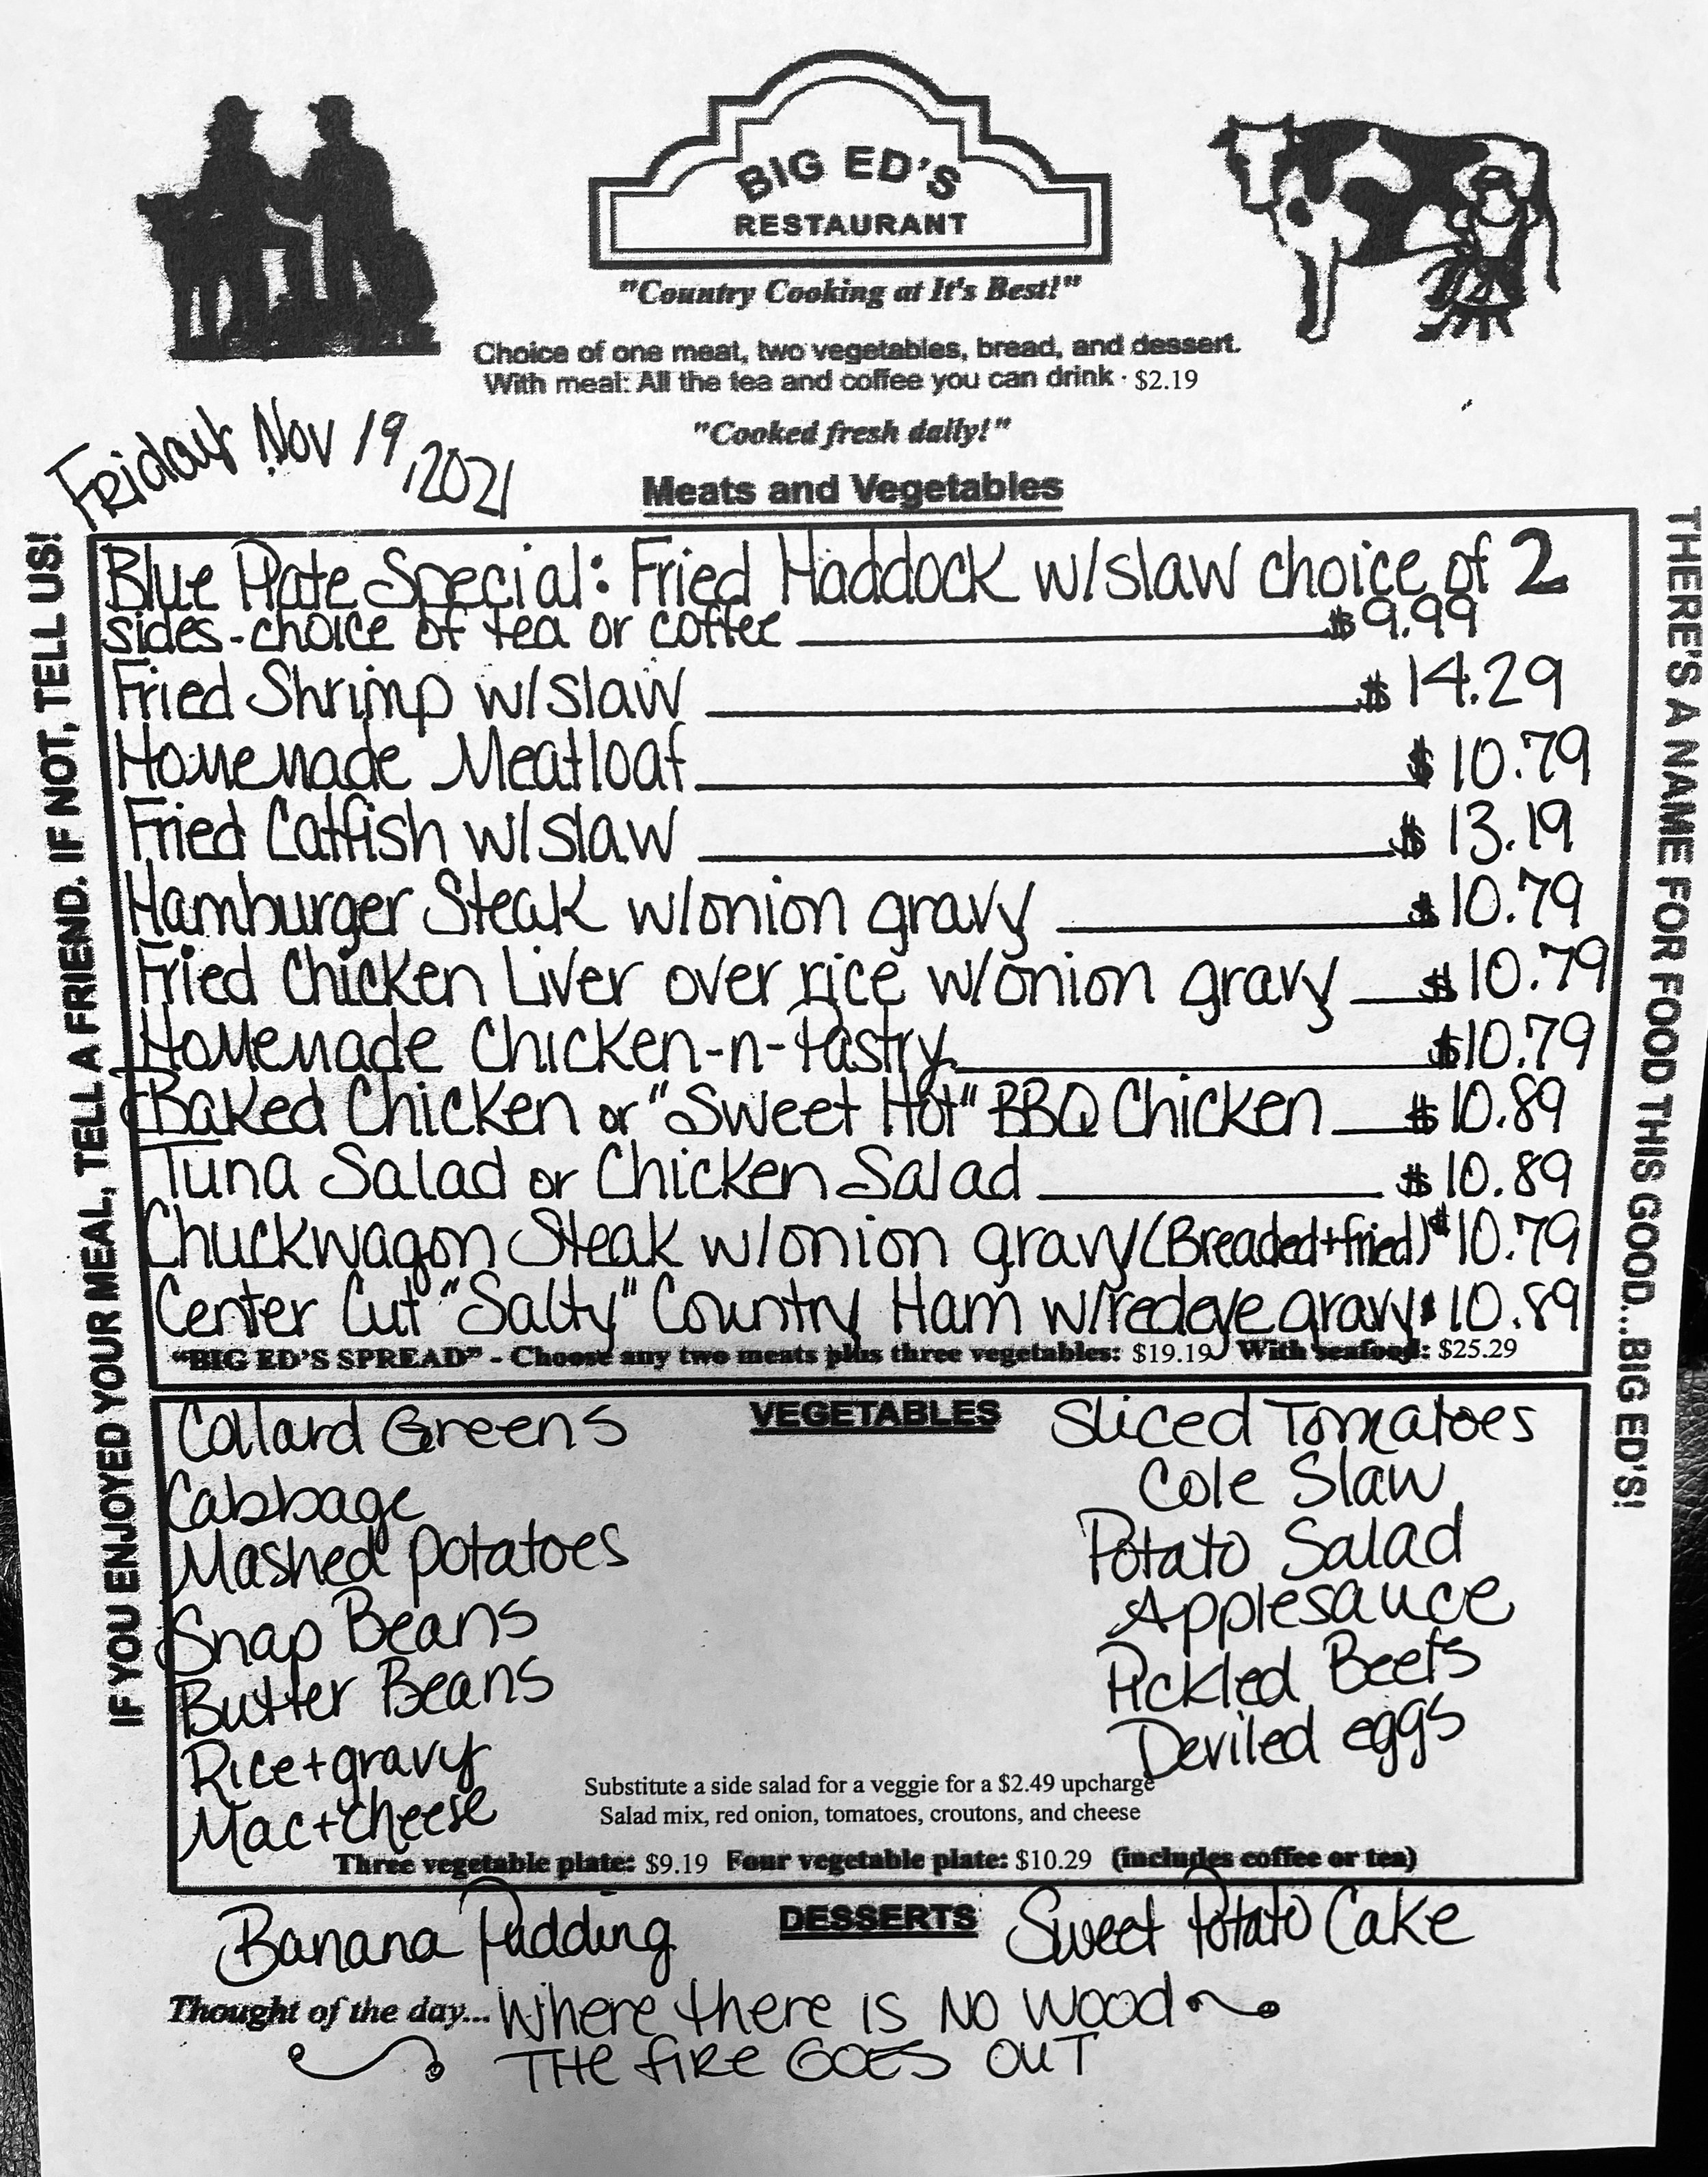 BIG ED'S
RESTAURANT
"Country Cooking at It's Best!"
Choice of one meat, two vegetables, bread, and dessert.
With meal: All the tea and coffee you can drink · $2.19
"Cooked fresh daily!"
Friday Nov 19, 2021
Meats and Vegetables
IF YOU ENJOYED YOUR MEAL, TELL A FRIEND. IF NOT, TELL US!
Blue Plate Special: Fried Haddock w/slaw choice of 2
sides - choice of tea or coffee $9.99
Fried Shrimp w/slaw $14.29
Homemade Meatloaf $10.79
Fried Catfish w/slaw $13.19
Hamburger Steak w/onion gravy $10.79
Fried Chicken Liver over rice w/onion gravy $10.79
Homemade Chicken-n-Pastry $10.79
Baked Chicken or "Sweet Hot" BBQ Chicken $10.89
Tuna Salad or Chicken Salad $10.89
Chuckwagon Steak w/onion gravy (Breaded+fried) $10.79
Center Cut "Salty" Country Ham w/redeye gravy $10.89
"BIG ED'S SPREAD" - Choose any two meats plus three vegetables: $19.19 With seafood: $25.29
THERE'S A NAME FOR FOOD THIS GOOD...BIG ED'S!
VEGETABLES
Collard Greens
Cabbage
Mashed potatoes
Snap Beans
Butter Beans
Rice+gravy
Mac+cheese
Sliced Tomatoes
Cole Slaw
Potato Salad
Applesauce
Pickled Beets
Deviled eggs
Substitute a side salad for a veggie for a $2.49 upcharge
Salad mix, red onion, tomatoes, croutons, and cheese
Three vegetable plate: $9.19 Four vegetable plate: $10.29 (includes coffee or tea)
DESSERTS
Banana Pudding
Sweet Potato Cake
Thought of the day... Where there is NO WOOD
THE fiRE GOES OUT